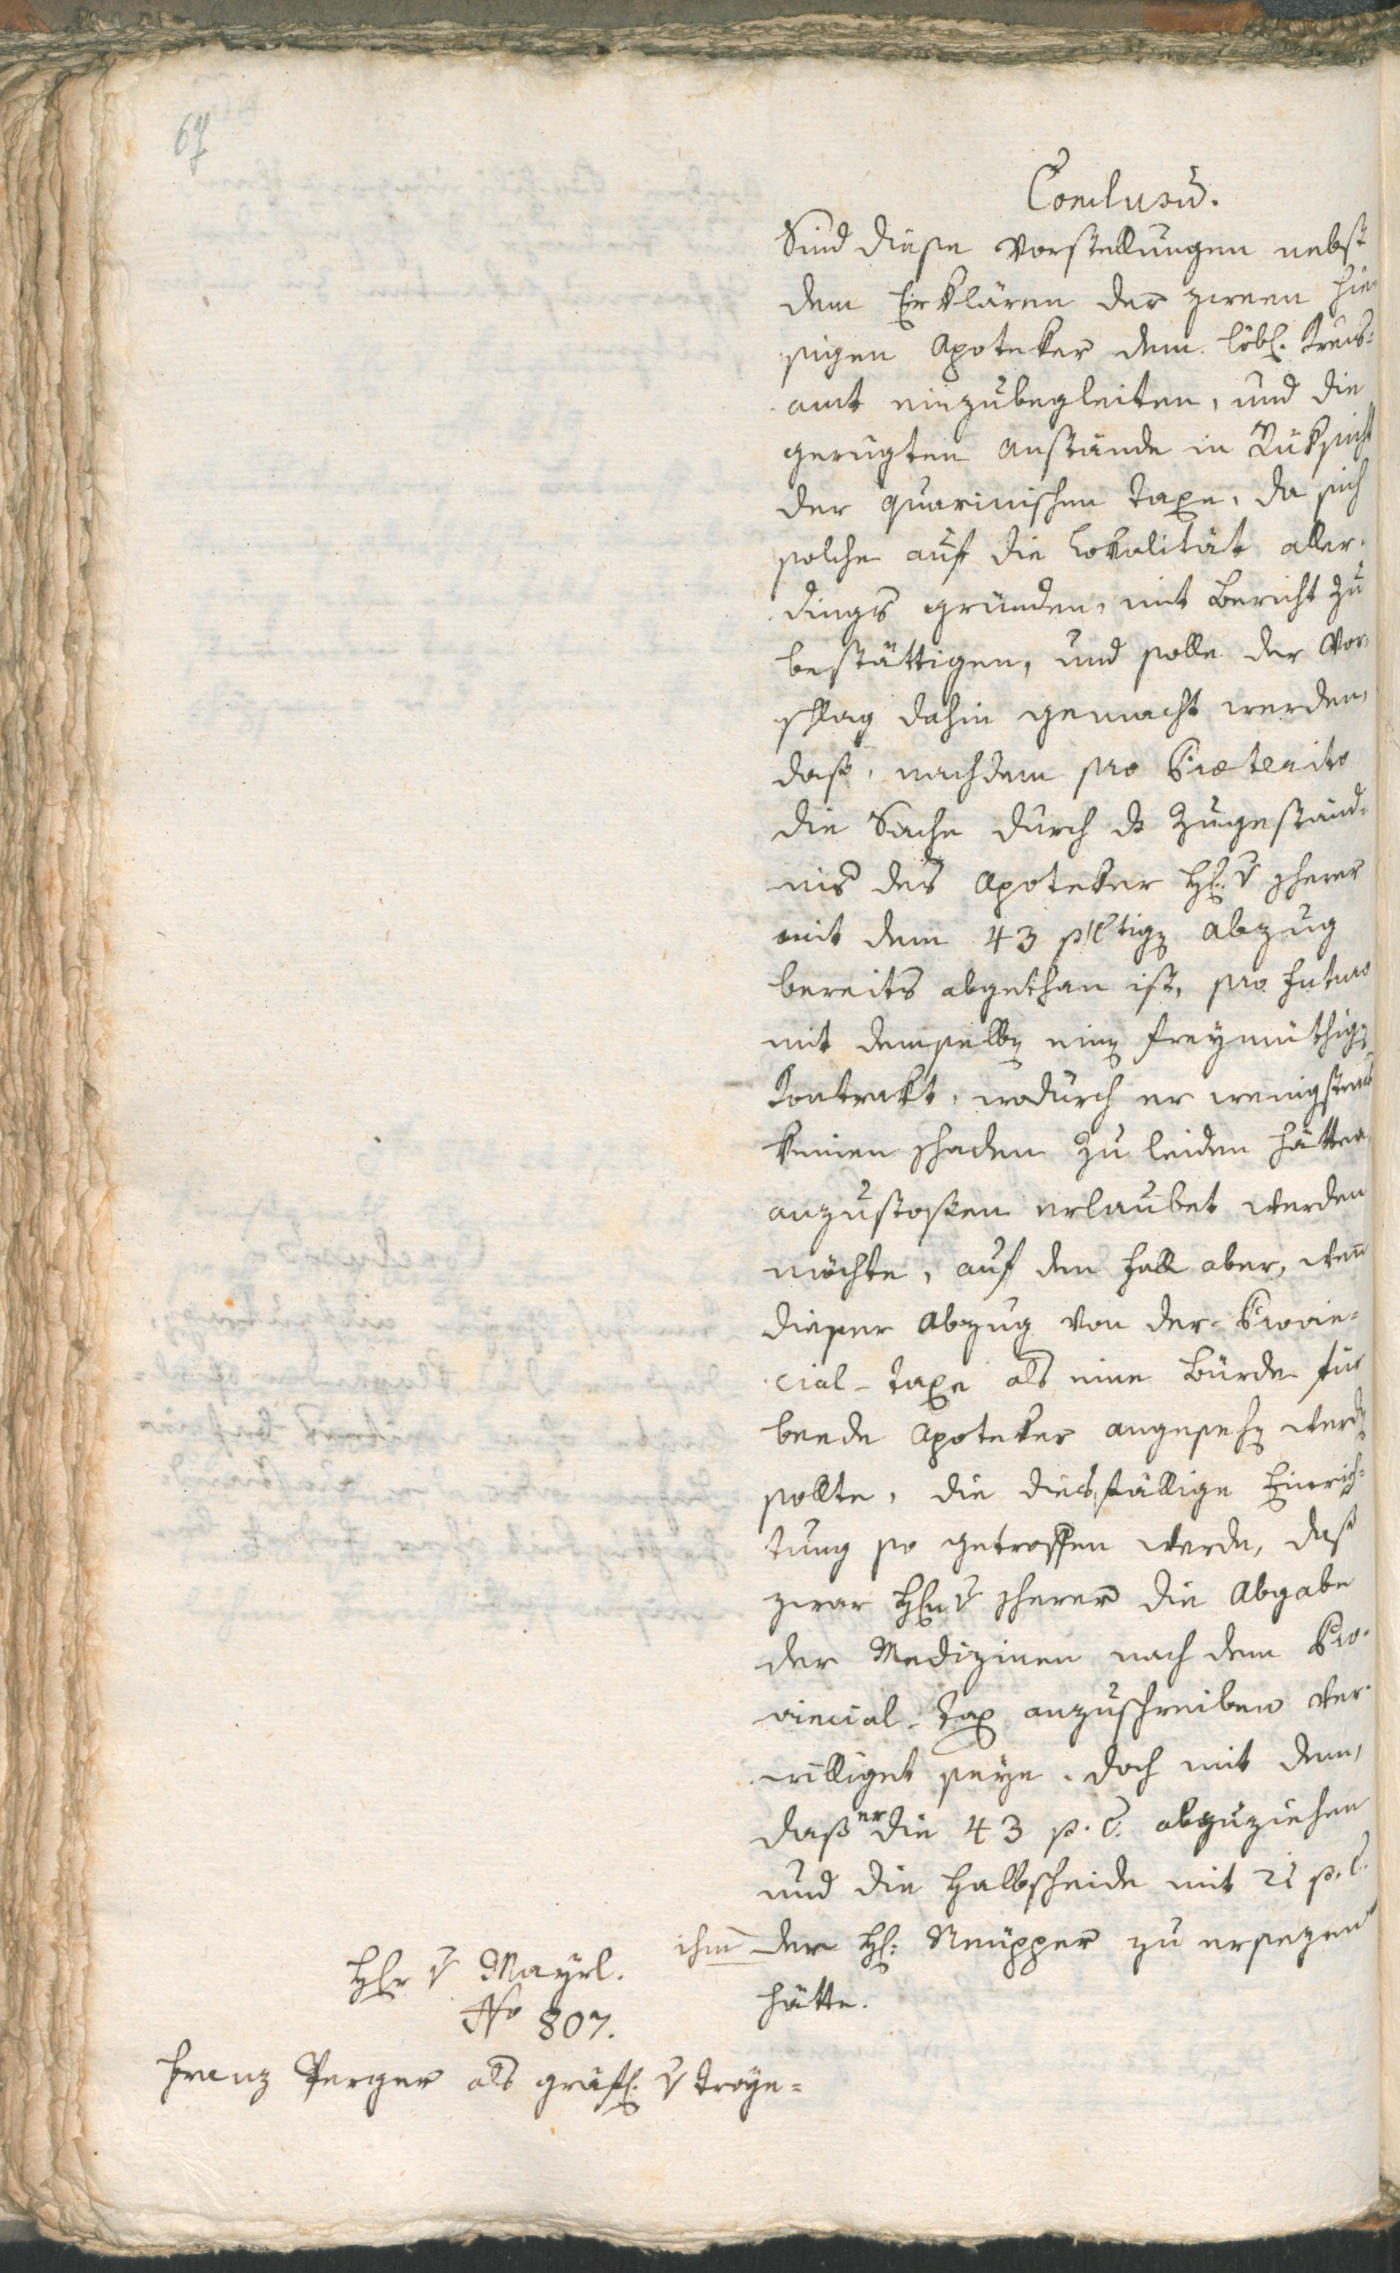 67
Conclusū.
Sind diese Vorstellungen nebst
dem Erklären der zween hie-
sigen Apoteker dem löbl. Kreis-
amt einzubegleiten, und die
gerügten Anstände in Rüksicht
der quarinischen Taxe, da sich
solche auf die Lokalität aller-
dings gründen, mit Bericht zu
bestättigen, und solle der Vor-
schlag dahin gemacht werden,
daß, nachdem pro Præterito
die Sache durch d Zugeständ-
nis des Apoteker H: v scherer
mit dem 43 pCtigen Abzug
bereits abgethan ist, pro futuro
mit demselben einen freymüthigen
Kontrakt, wodurch er wenigstens
keinen schaden zu leiden hätte,
anzustossen erlaubet werden
möchte, auf den Fall aber, wen̄
dieser Abzug von der Provin-
cial-Taxe als eine Bürde für
beede Apoteker angesehen werden
sollte, die diesfällige Einrich-
tung so getroffen werde, daß
zwar Hrn v scherer die Abgabe
der Medizinen nach dem Pro-
vincial-Tax anzuschreiben ver-
williget seye, doch mit dem,
daß er die 43 p. C. abzuziehen
und die Halbscheide mit 21 p. C.
ihm der H: zu ersezen
hätte.
Hr v Mayrl.
No 807.
Franz Perger als gräfl: v Troye=